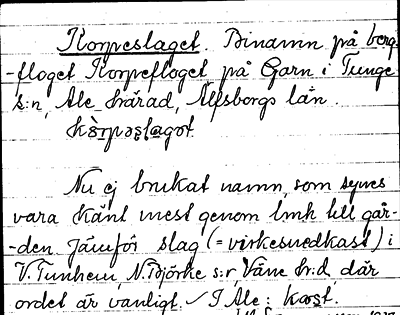 Korpeslaget. Binamn på berg-
-floget Korpefloget på Garn i Tunge
s:n, Ale härad, Älfsborgs län.
Nu ej brukat namn, som synes
vara känt mest genom lmk till går-
-den. Jämför slag (= virkesnedkast) i
V. Tunhem, N. Björke s:r, Väne h:d, där
ordet är vanligt. I Ale: kast.